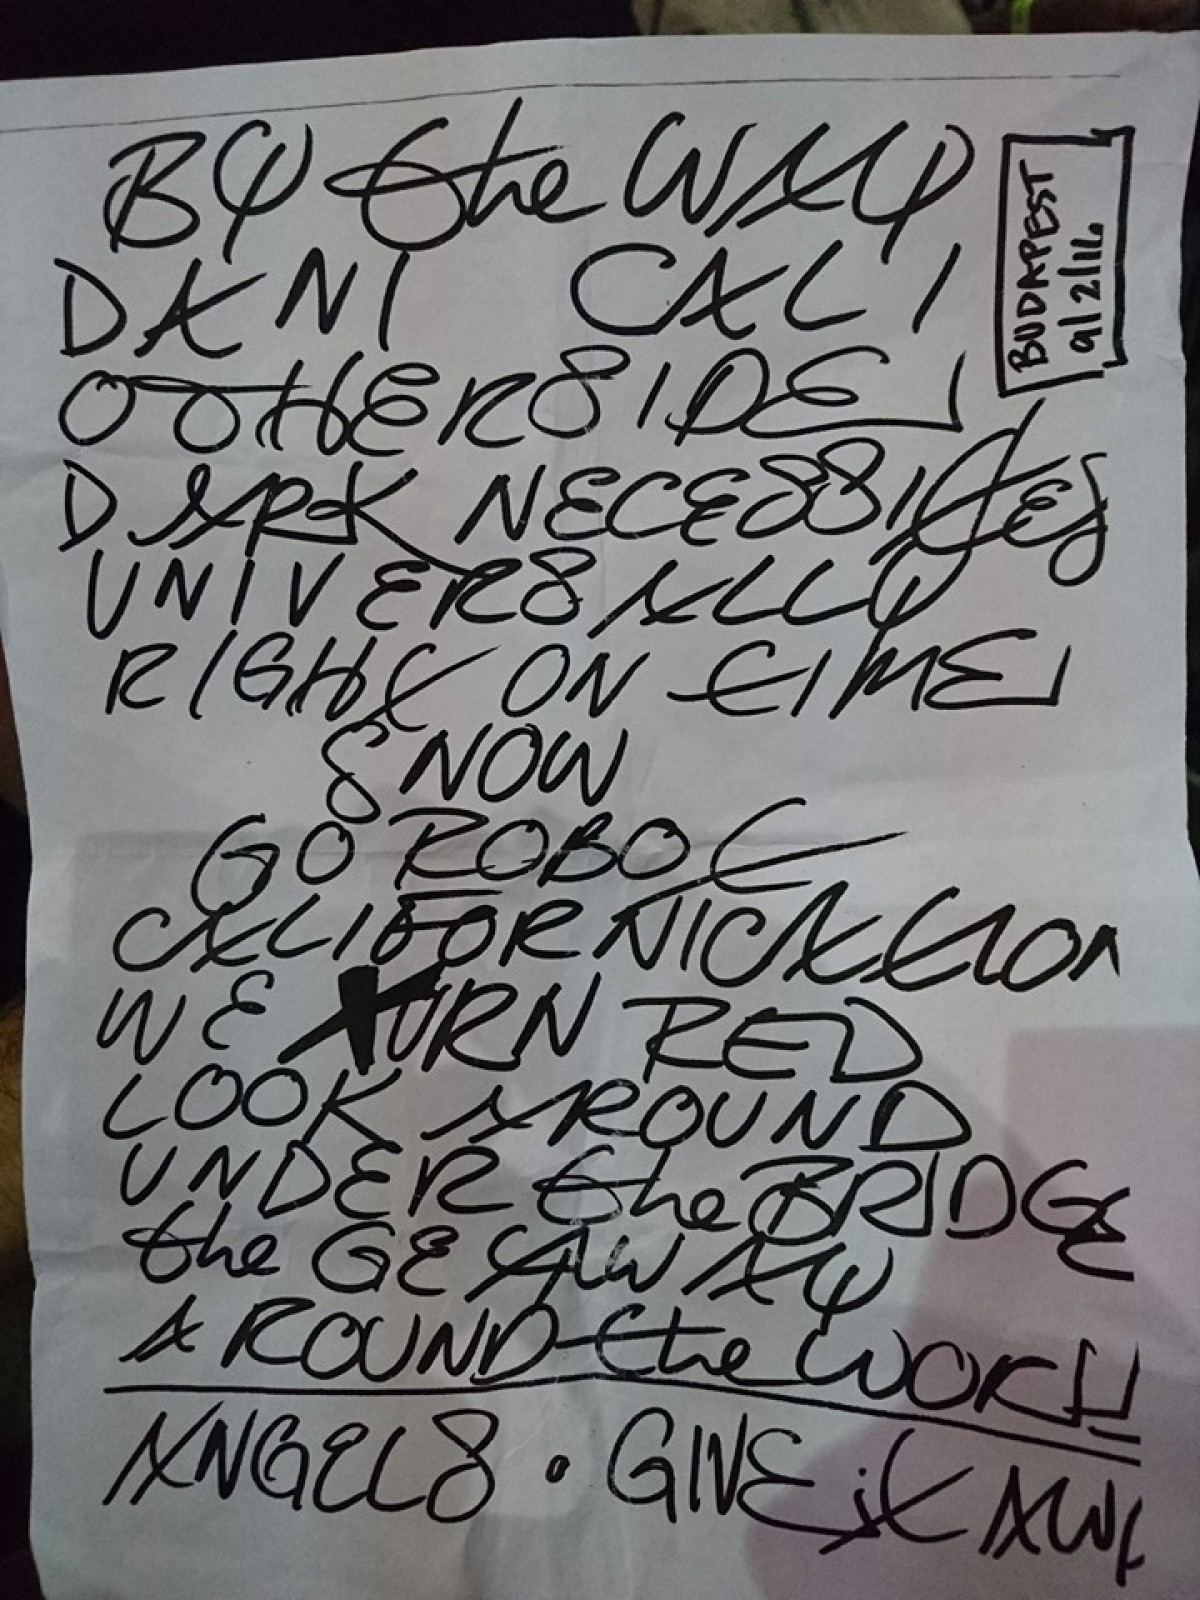 BY the WAY
DANI CALI
OTHERSIDE
DARK NECESSITIES
UNIVERSALLY
RIGHT ON TIME
SNOW
GO ROBOT
CALIFORNICATION
WE TURN RED
LOOK AROUND
UNDER the BRIDGE
the GETAWAY
AROUND the WORLD
ANGELS • GIVE it AWAY
BUDAPEST
9/2/16